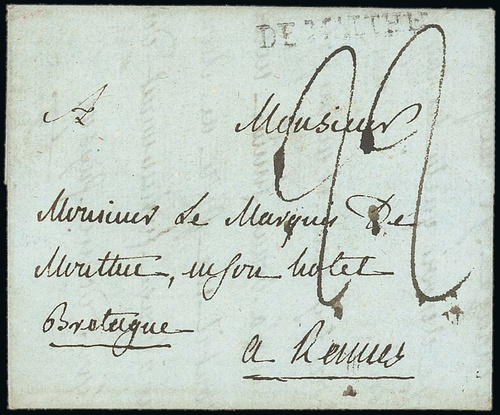 DE MALTHE
A Monsieur
22
Monsieur Le Marquis De
en son hotel
Bretagne
a Rennes